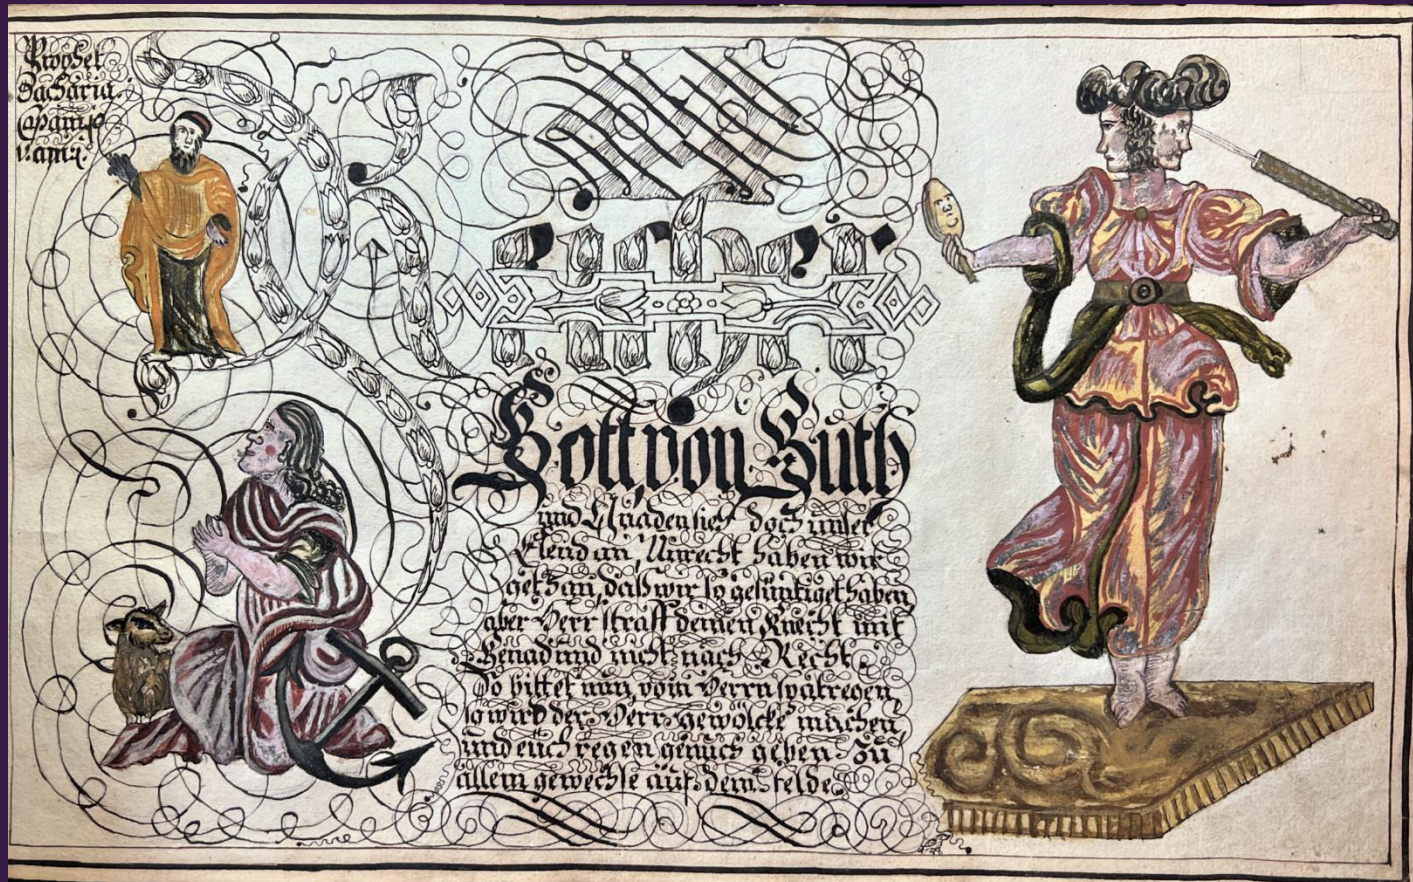 Prophet
Zacharia.
Gott, von Güth
und Gnaden sieh doch unser
Elend an, Unrecht haben wir
gethan, daß wir so gesüntiget haben,
aber Herr straff deinen Knecht mit
Genad und nicht nach Recht.
So bittet nun, vom Herrn spatregen
so wird der Herr gewölcke machen,
und euch regen genuch geben zu
allem gewechse auf dem felde